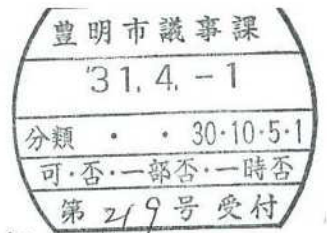 豊明市議事課
'31.4.-1
分類 ・ ・ 30・10・5・1
可・否・一部否・一時否
第219号受付